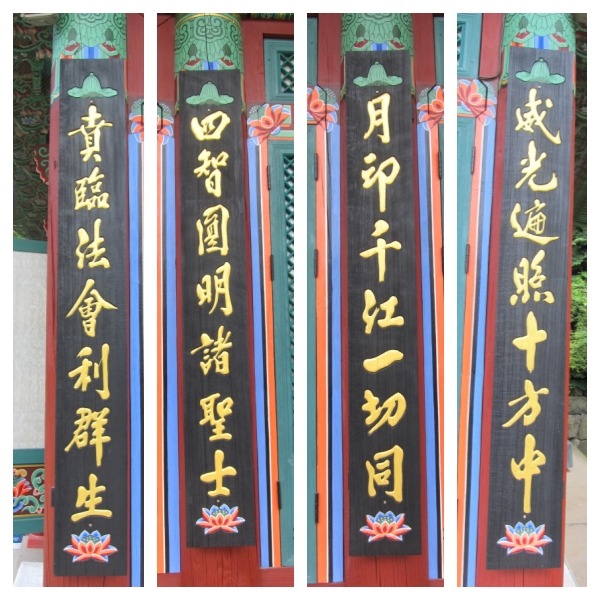 威光遍照十方中
月印千江一切同
四智圓明諸聖士
賁臨法會利群生